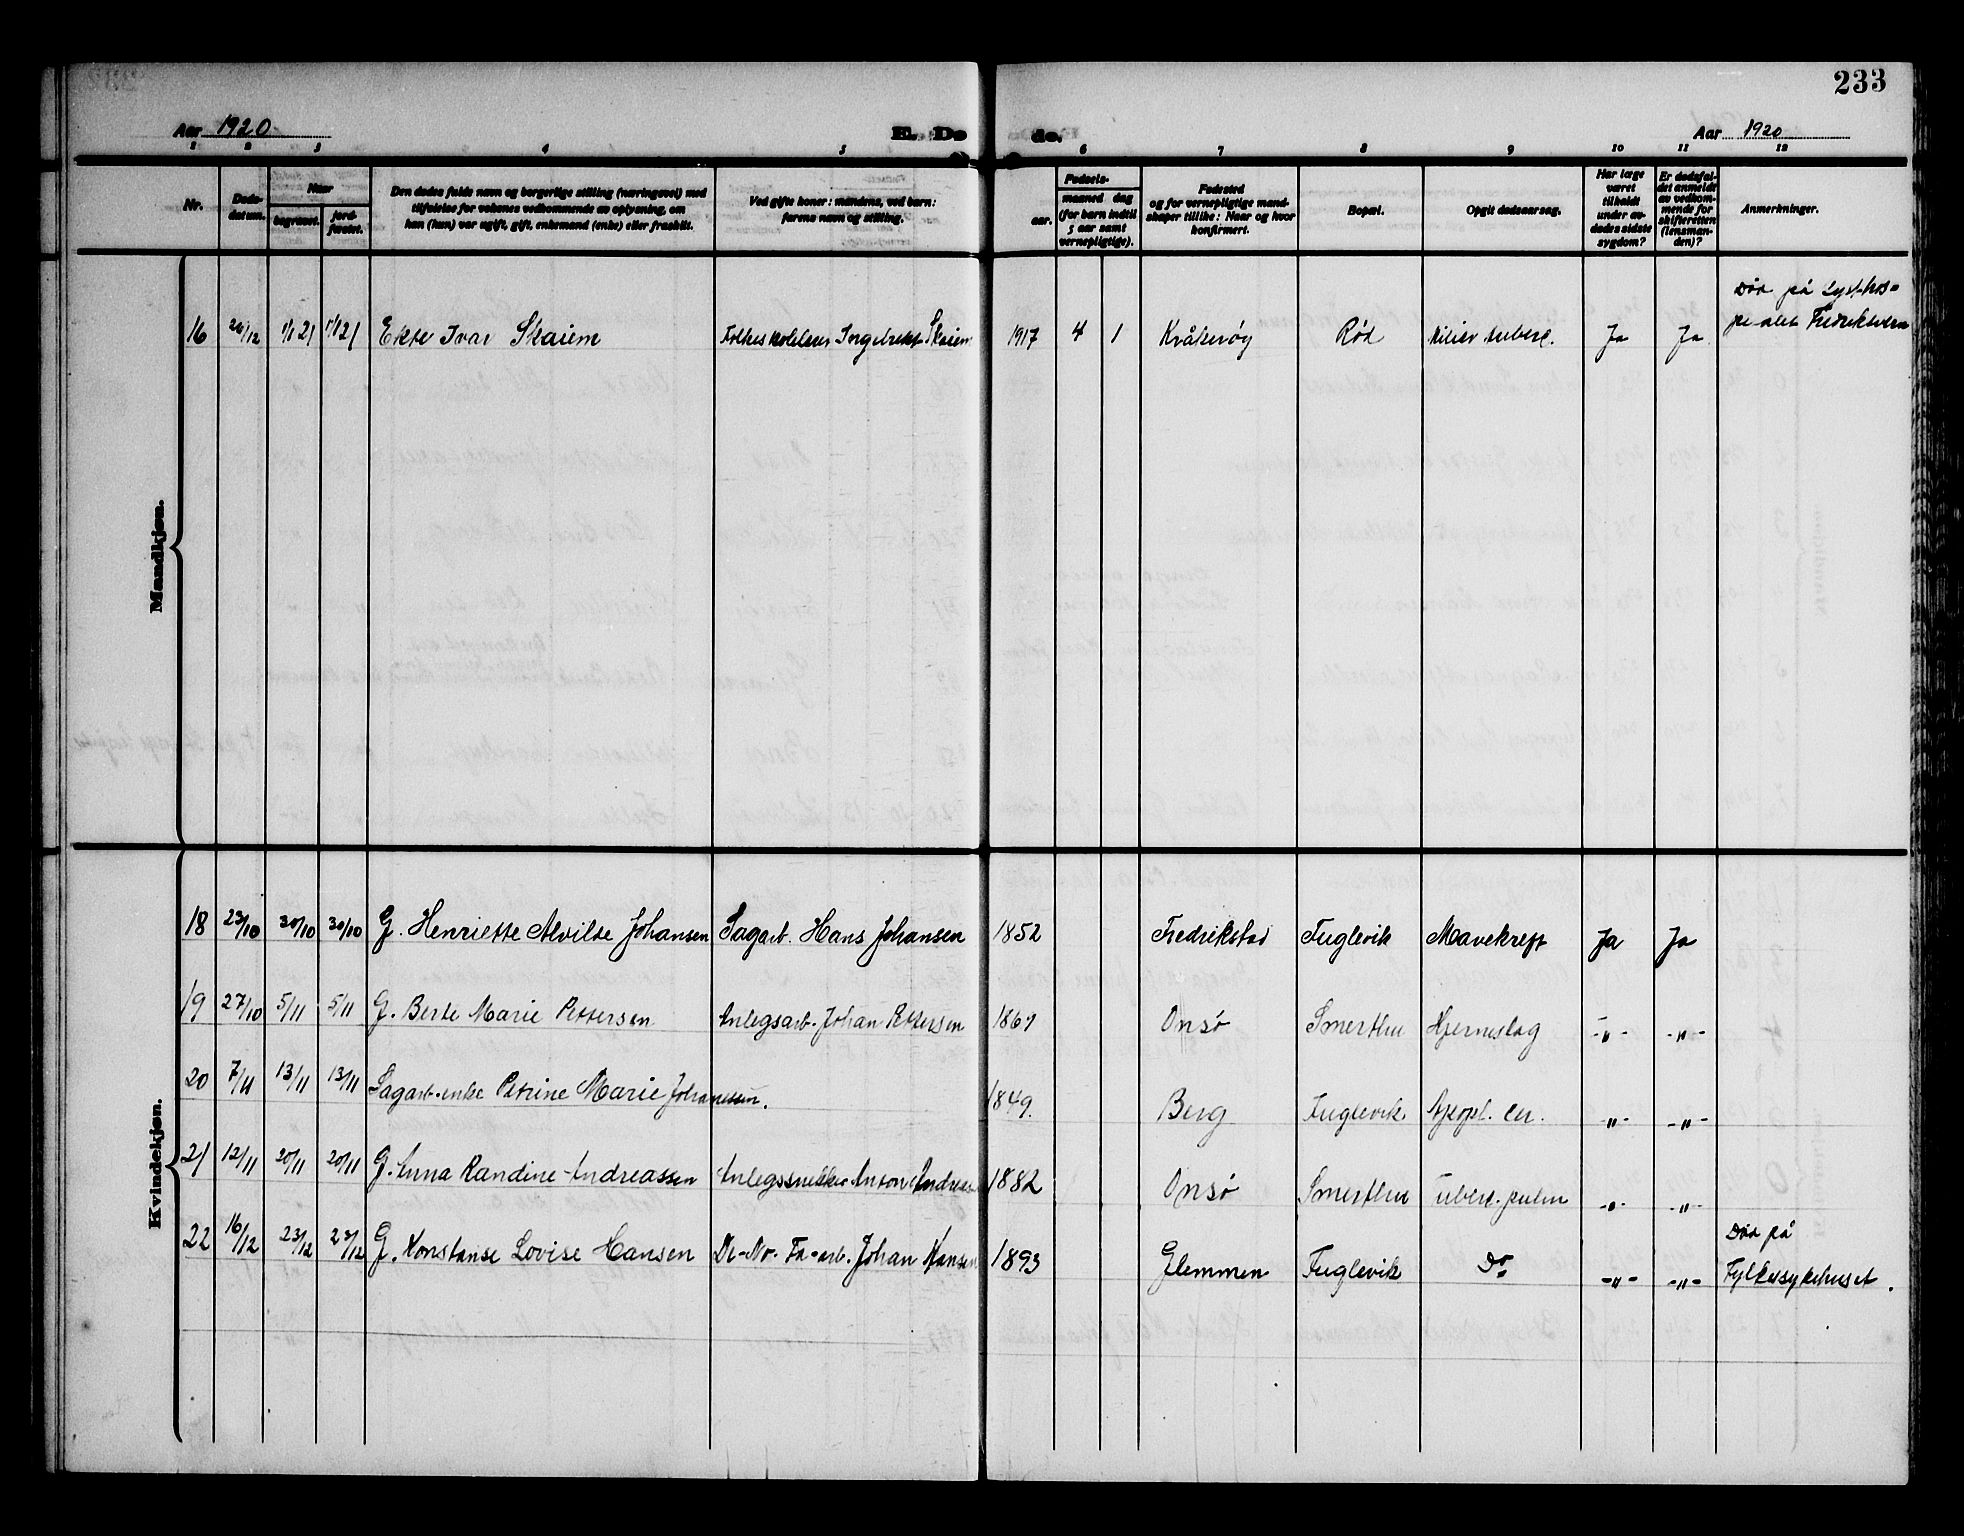 233
Aar 1920
E. Dø
de.
Aar 1920
1 2 3 4 5 6 7 8 9 10 11 12
Nr.
Døds-
datum.
Naar
begravet.
jord-
fæstet.
Den dødes fulde navn og borgerlige stilling (næringsvei) med
tilføielse for voksnes vedkommende av oplysning, om
han (hun) var ugift, gift, enkemand (enke) eller fraskilt.
Ved gifte koner: mandens, ved barn:
farens navn og stilling.
Fødsels-
aar.
maaned dag
(for barn indtil
5 aar samt
vernepligtige).
Fødested
og for vernepligtige mand-
skaper tillike: Naar og hvor
konfirmert.
Bopæl.
Opgit dødsaarsag.
Har læge
været
tilkaldt
under av-
dødes sidste
sygdom?
Er dødsfal-
det anmeldt
av vedkom-
mende for
skifteretten
(lensman-
den)?
Anmerkninger.
Mandkjøn.
Død på Kyst-hos-
pi-alet Fredriksværn
16 1/1 21 1/1 21 Ekte Ivar Skaiem Ingebrekt Skaiem 1917 4 1 Kråkerøy Rød Ja Ja
Kvindekjøn.
18 23/10 30/10 30/10 G. Henriette Alvilde Johansen Sagarb. Hans Johansen 1852 Fredrikstad Fuglevik Mavekreft Ja Ja
19 27/10 5/11 5/11 G. Berte Marie Pettersen Anlegsarb. Johan Pettersen Onsø Smerthu Hjerneslag -"- -"-
20 7/11 13/11 13/11 Sagarb.enke Petrine Marie Johannessen. 1849. Berg Fuglevik Apopl. cer. -"- -"-
21 12/11 20/11 20/11 G. Anna Randine Andreassen Anlegssnekker Anton Andreas 1882 Onsø Smerthu uberc. pulm -"- -"-
22 16/12 23/12 23/12 G. Konstanse Lovise Hansen De-No-Fa-arb. Johan Hansen 1893 Glemmen Fuglevik Do -"- -"- Død på
Fylkesykehuset.